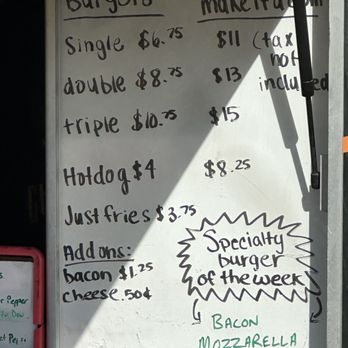 Burgers Make it a
Single $6.75 $11 (tax
not
double $8.75 $13 included
triple $10.75 $15
Hotdog $4 $8.25
Just fries $3.75
Add ons:
bacon $1.25
cheese .50¢
Specialty
burger
of the week
BACON
MOZZARELLA